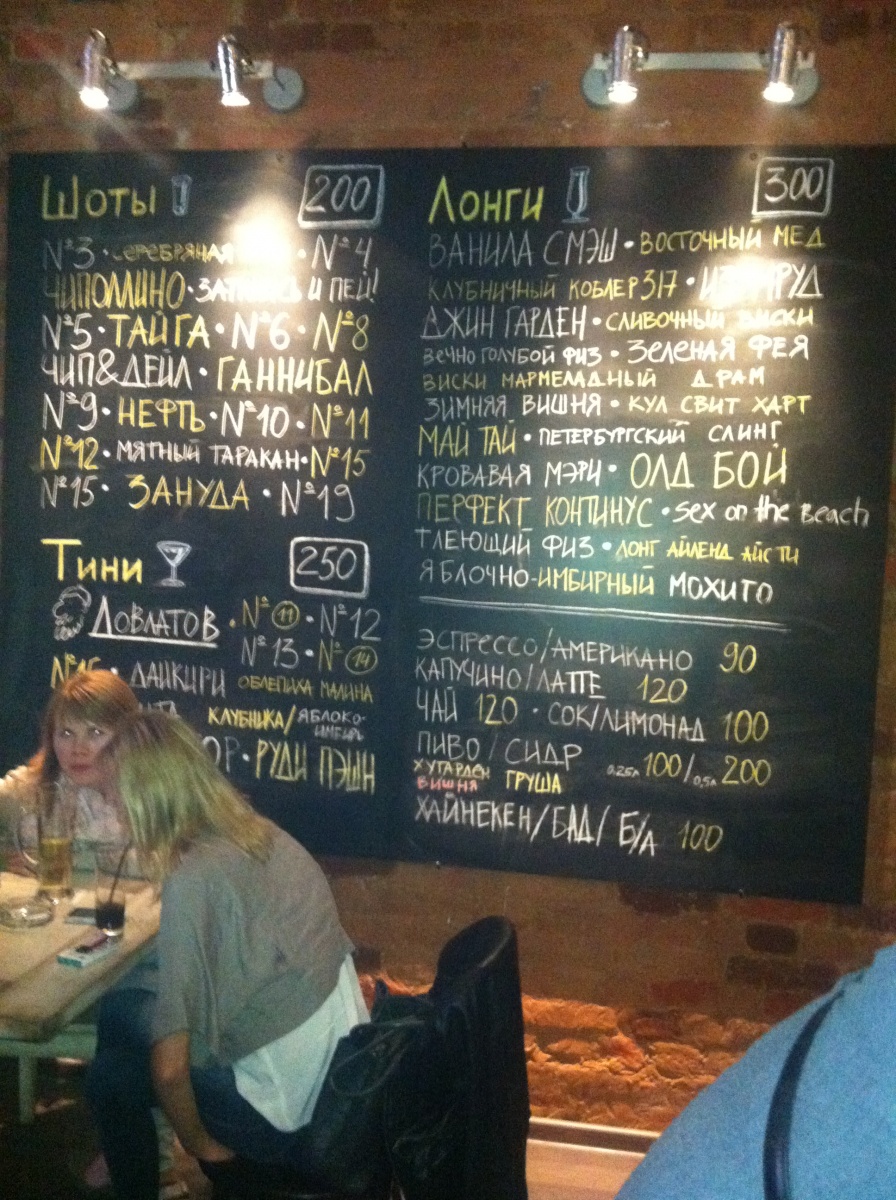 Шоты 200
№3 · СЕРЕБРЯНАЯ · №4
ЧИПОЛЛИНО · И ПЕЙ!
№5 · ТАЙГА · №6 · №8
ЧИП&ДЕЙЛ · ГАННИБАЛ
№9 · НЕФТЬ · №10 · №11
№12 · МЯТНЫЙ ТАРАКАН · №15
№15 · ЗАНУДА · №19
Тини 250
ДОВЛАТОВ · №11 · №12
№13 · №14
ДАЙКИРИ ОБЛЕПИХА МАЛИНА
КЛУБНИКА/ЯБЛОКО-
ИМБИРЬ
· РУДИ ПЭШН
Лонги 300
ВАНИЛА СМЭШ · ВОСТОЧНЫЙ МЕД
КЛУБНИЧНЫЙ КОБЛЕР 317 · ИЗУМРУД
ДЖИН ГАРДЕН · СЛИВОЧНЫЙ ВИСКИ
ВЕЧНО ГОЛУБОЙ ФИЗ · ЗЕЛЕНАЯ ФЕЯ
ВИСКИ МАРМЕЛАДНЫЙ ДРАМ
ЗИМНЯЯ ВИШНЯ · КУЛ СВИТ ХАРТ
МАЙ ТАЙ · ПЕТЕРБУРГСКИЙ СЛИНГ
КРОВАВАЯ МЭРИ · ОЛД БОЙ
ПЕРФЕКТ КОНТИНУС · Sex on the Beach
ТЛЕЮЩИЙ ФИЗ · ЛОНГ АЙЛЕНД АЙС ТИ
ЯБЛОЧНО-ИМБИРНЫЙ МОХИТО
ЭСПРЕССО/АМЕРИКАНО 90
КАПУЧИНО/ЛАТТЕ 120
ЧАЙ 120 · СОК/ЛИМОНАД 100
ПИВО / СИДР
ХУГАРДЕН ГРУША 0,25л 100/0,5л 200
ВИШНЯ
ХАЙНЕКЕН/БАД/Б/А 100